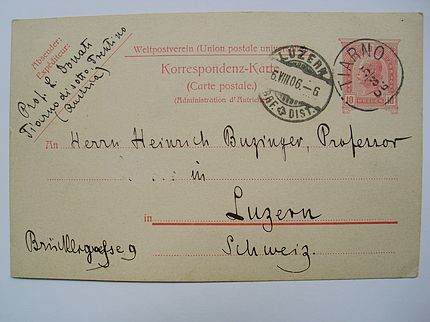 Absender:
Expéditeur:
Prof. L. Donati
Tiarno di sotto Trentino
(Austria)
Weltpostverein (Union postale univer
Korrespondenz-Karte
(Carte postale.)
(Administration d'Autriche)
LUZERN
6.VIII.06.-6
BRF. DIST.
TIARNO
10 10
An Herrn Heinrich Buzinger, Professor
. . . in
in Luzern
Brücklergasse 9 Schweiz.